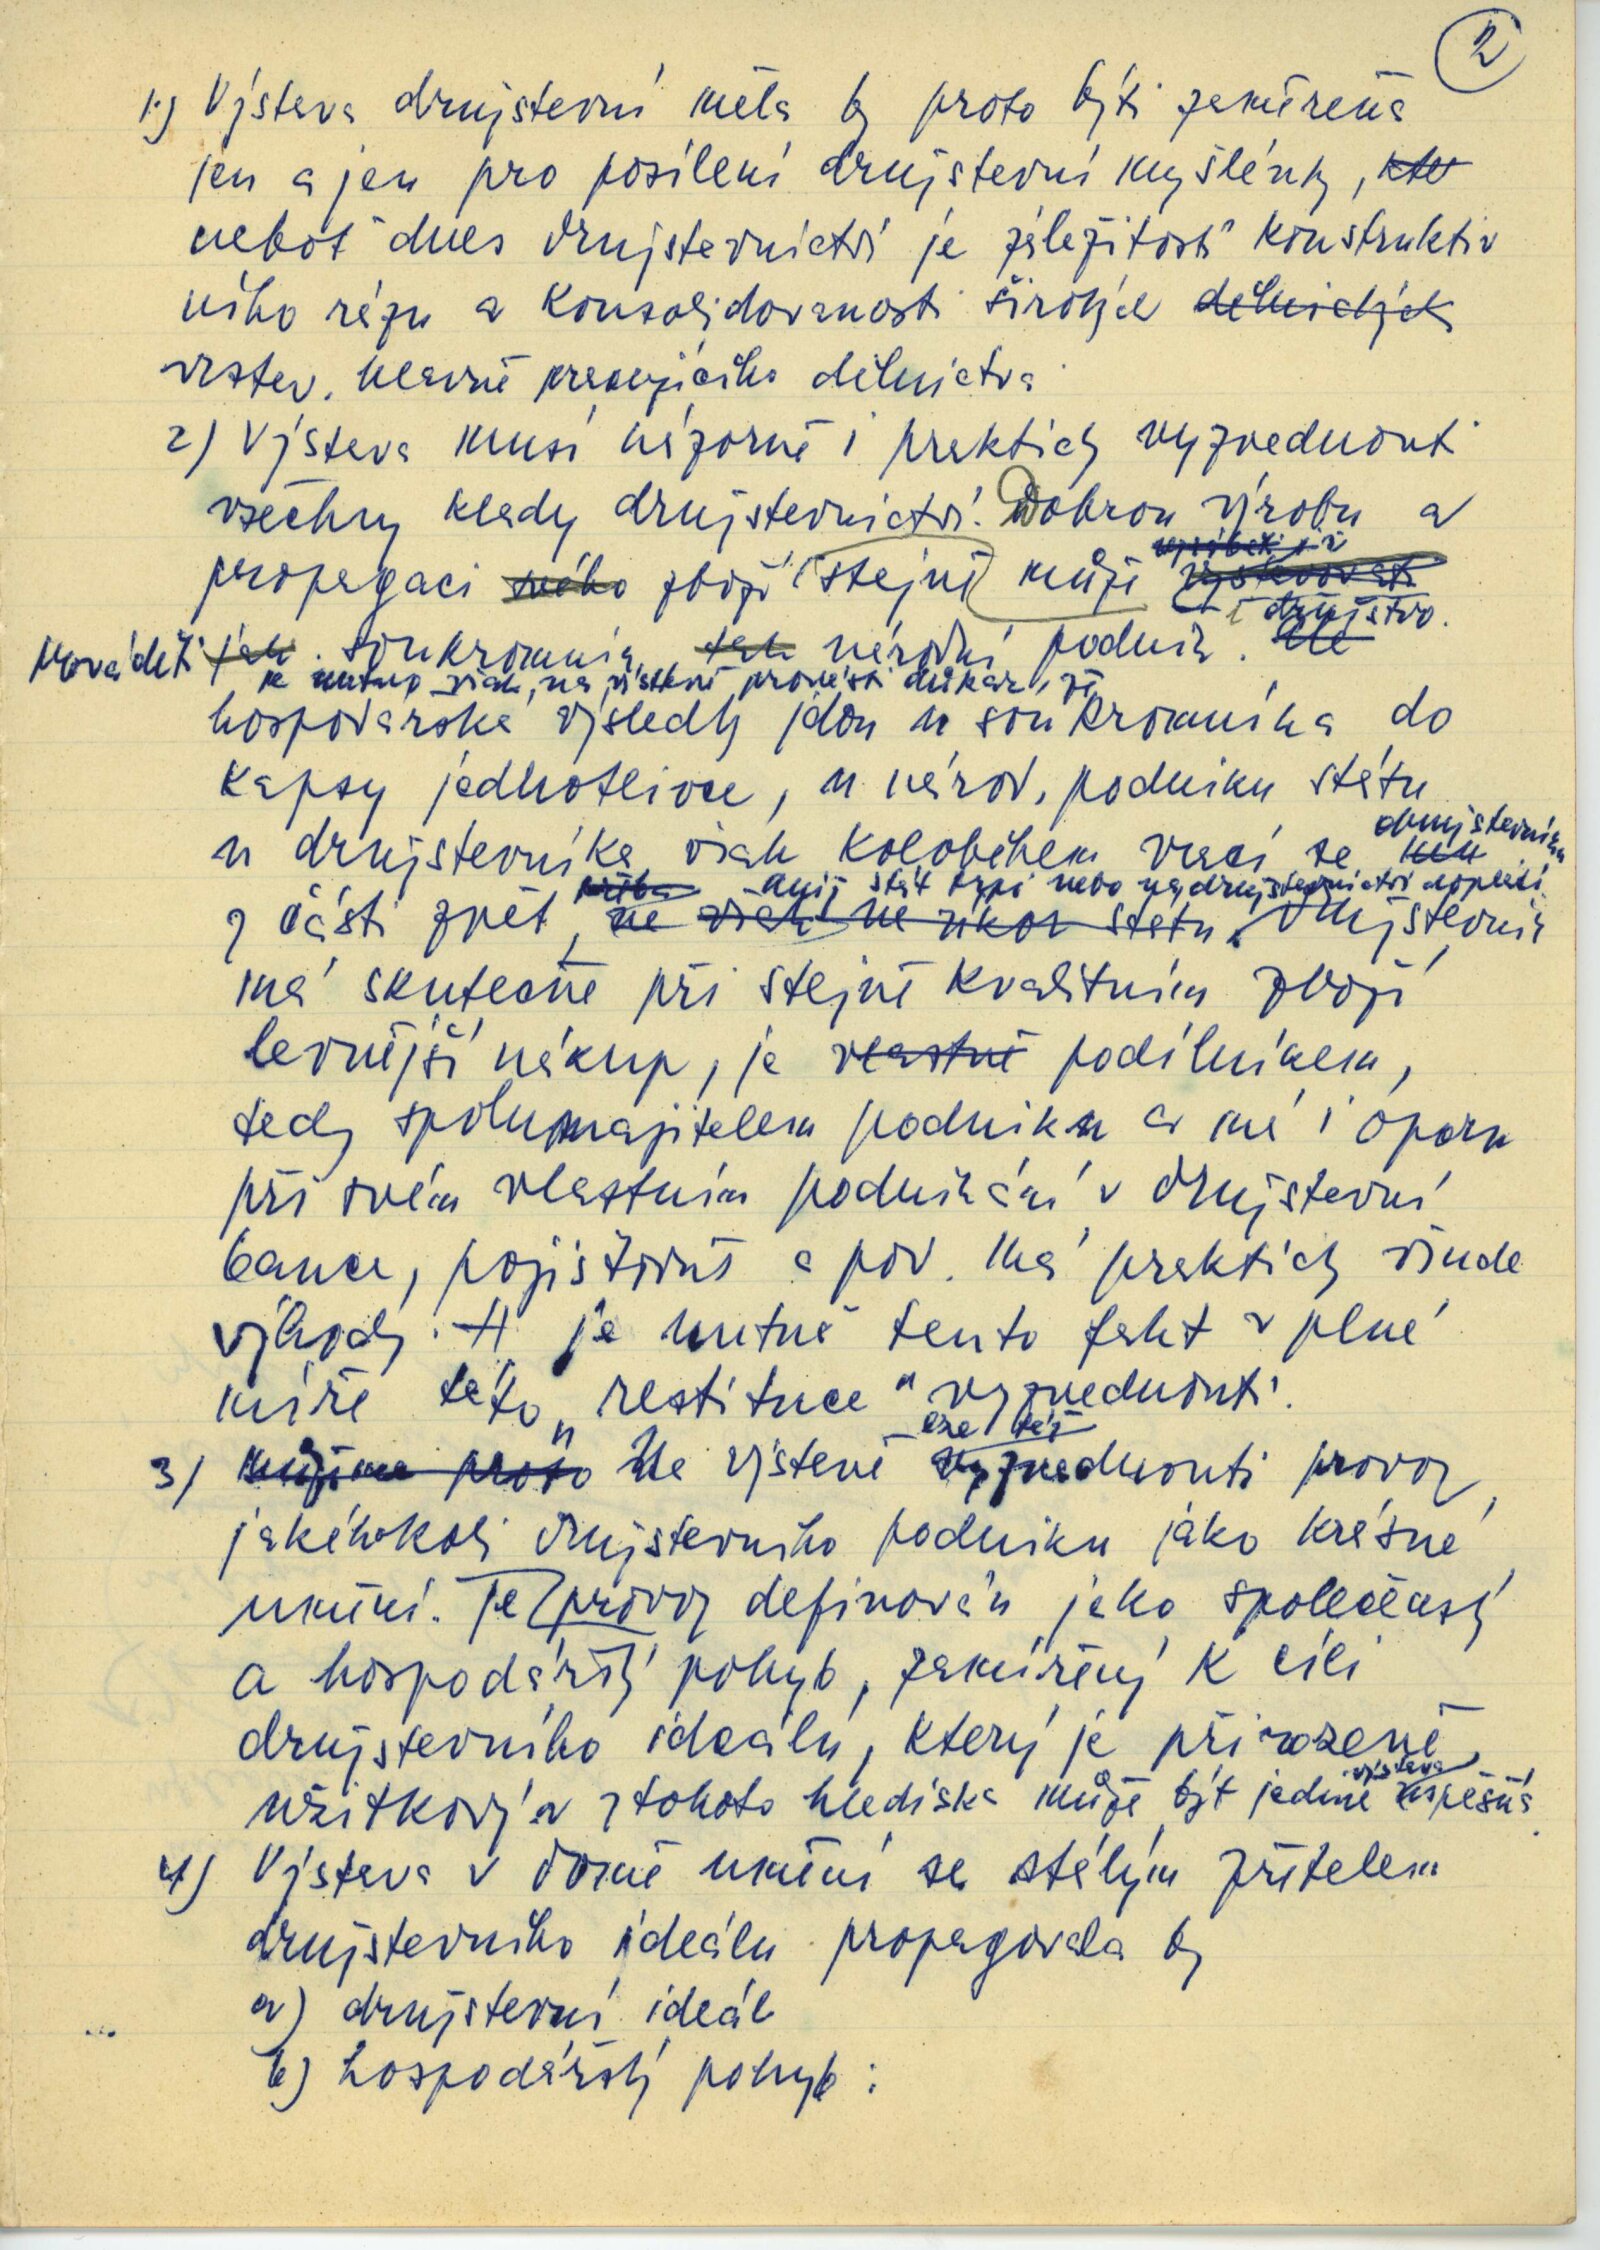 2
1.) Výstava družstevní měla by proto býti zaměřená
jen a jen pro posílení družstevní myšlénky,
neboť dnes družstevnictví je záležitostí konstruktiv
ního rázu a konsolidovanosti širokých dělnických
vrstev, hlavně pracujícího dělnictva
2) Výstava musí názorně i prakticky vyzvednouti
všechny klady družstevnictví. Dobrou výrobu a
propagaci svého zboží stejně může vystavovati
i družstvo.
prováděti jak soukromník, tak národní podnik. Ale
je nutno však, na výstavě provésti důkaz, že
hospodářské výsledky jdou u soukromníka do
kapsy jednotlivce, u národ. podniku státu
u družstevníka však koloběhem vrací se
družstevníku
z části zpět,
aniž stát trpí nebo na družstevnictví doplácí.
ne však ne úkor státu. Družstevník
má skutečně při stejně kvalitním zboží
levnější nákup, je vlastně podílníkem,
tedy spolumajitelem podniku a má i oporu
při svém vlastním podnikání v družstevní
bance, pojišťovně a pod. Má prakticky všude
výhody. A je nutné tento fakt v plné
míře této "restituce" vyzvednouti.
3) Můžeme proto Na výstavě vyzvednouti provoz
lze též
jakéhokoli družstevního podniku jako krásné
umění. Je provoz definován jako společenský
a hospodářský pohyb, zaměřený k cíli
družstevního ideálu, který je přirozeně
užitkový a z tohoto hlediska může být jedině úspěšná.
výstava
4) Výstava v domě umění se stálým zřetelem
družstevního ideálu propagovala by
a) družstevní ideál
b) hospodářský pohyb: